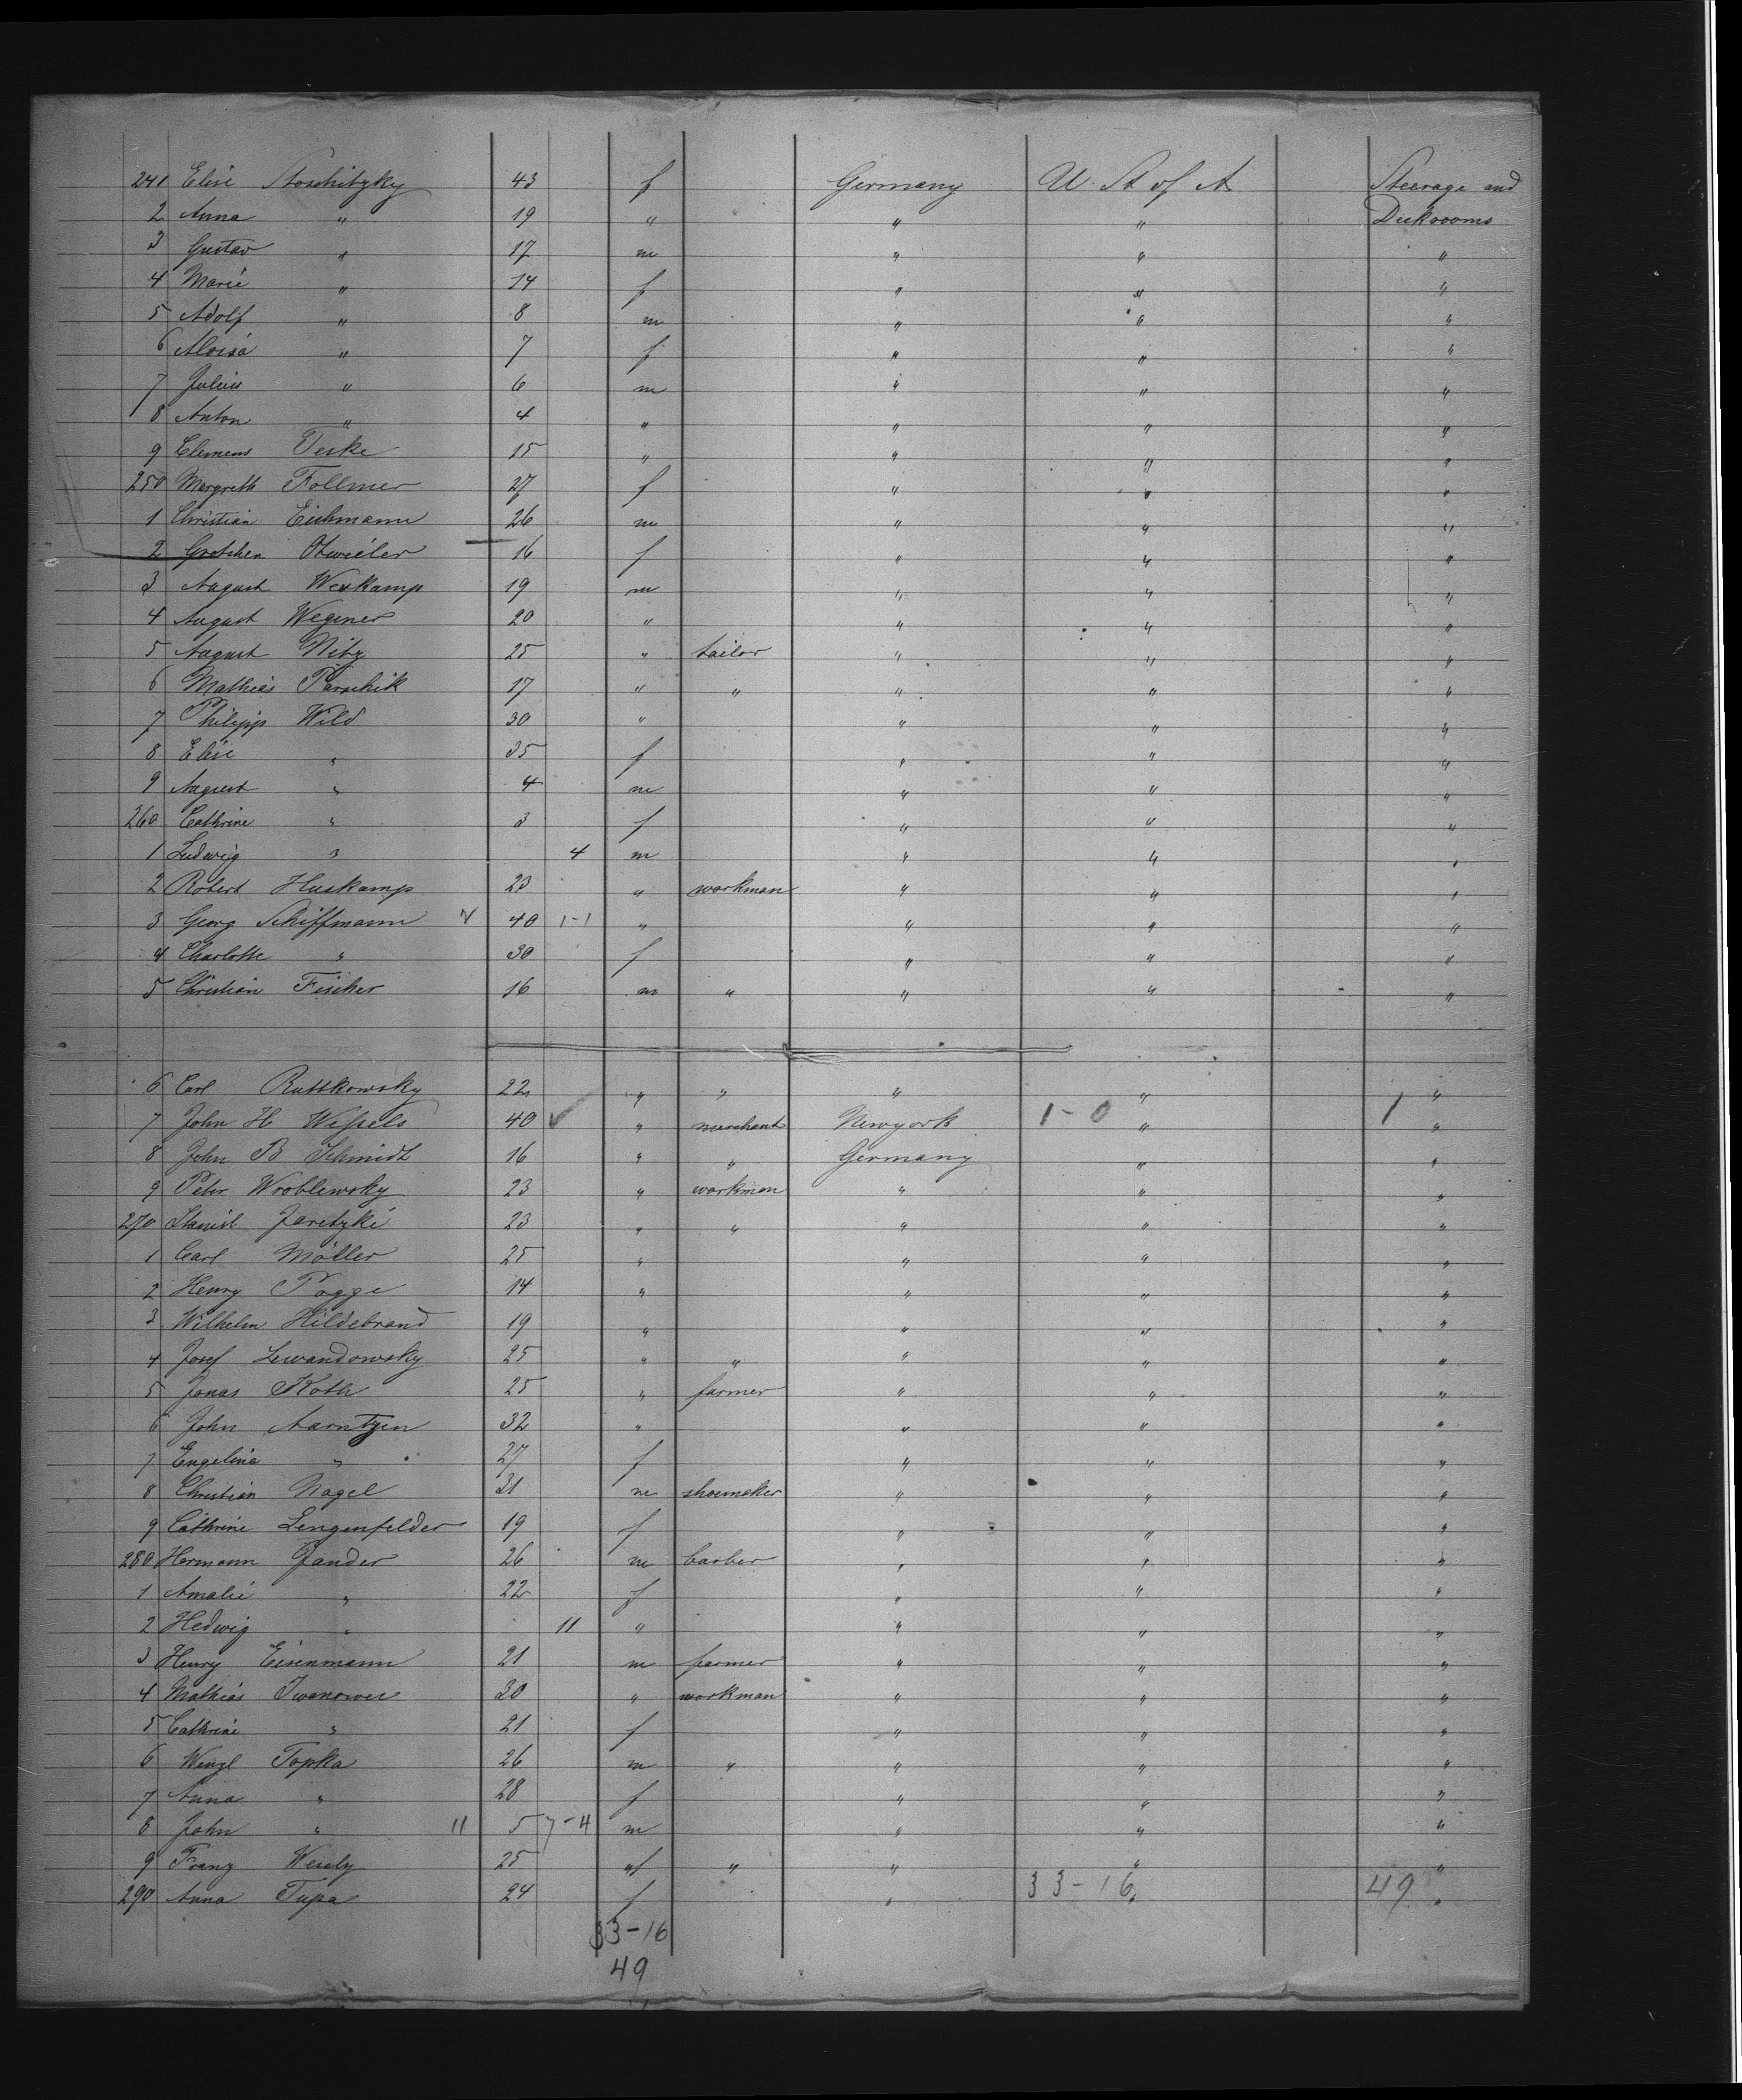 241 Elise Stoschitzky 43 f Germany U. St of A Steerage and
2 Anna " 19 " " " Deckrooms
3 Gustav " 17 m " " "
4 Marie " 14 f " " "
5 Adolf " 8 m " " "
6 Aloisa " 7 f " " "
7 Julius " 6 m " " "
8 Anton " 4 " " " "
9 Clemens Teske 15 " " " "
250 Margreth Follmer 27 f " " "
1 Christian Eichmann 26 m " " "
2 Gretchen Otweiler 16 f " " "
3 August Weskamp 19 m " " "
4 August Wegener 20 " " " "
5 August Nitz 25 " tailor " " "
6 Mathias Parschik 17 " " " " "
7 Philipp Wild 30 " " " "
8 Elise " 35 f " " "
9 August " 4 m " " "
260 Cathrine " 3 f " " "
1 Ludwig " 4 m " " "
2 Robert Huskamp 23 " workman " " "
3 Georg Schiffmann 40 1-1 " " " "
4 Charlotte " 30 f " " "
5 Christian Fischer 16 m " " " "
6 Carl Ruttkowsky 22 " " " " "
7 John H Wessels 40 " merchant Newyork 1-0 " 1 "
8 John B Schmidt 16 " " Germany " "
9 Peter Wroblewsky 23 " workman " " "
270 Stanisl Jaretzki 23 " " " " "
1 Carl Möller 25 " " " "
2 Henry Pogge 14 " " " "
3 Wilhelm Hildebrand 19 " " " "
4 Josef Lewandowsky 25 " " " " "
5 Jonas Koth 25 " farmer " " "
6 John Aarntzen 32 " " " "
7 Engelina " 27 f " " "
8 Christian Nagel 31 m shoemaker " " "
9 Cathrine Lengenfelder 19 f " " "
280 Hermann Jander 26 m barber " " "
1 Amalie " 22 f " " "
2 Hedwig " 11 " " " "
3 Henry Eisenmann 21 m farmer " " "
4 Mathias Iwanower 30 " workman " " "
5 Cathrine " 21 f " " "
6 Wenzl Topka 26 m " " " "
7 Anna " 28 f " " "
8 John " 11 5 7-4 m " " "
9 Franz Wesely 25 " " " " "
290 Anna Tupa 24 f " 33-16 " 49 "
33-16
49